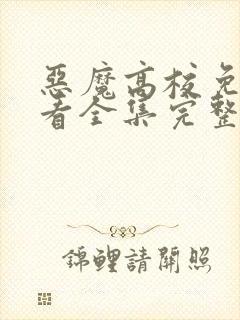 惡魔高校免
看全集完整
錦鯉請開照